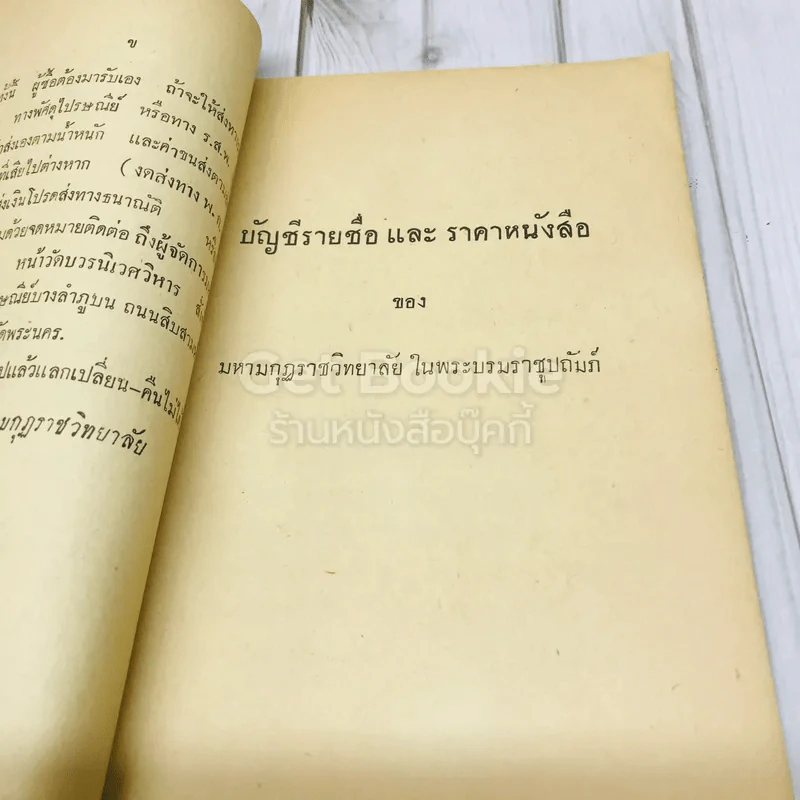 ข
ผู้ซื้อต้องมารับเอง ถ้าจะให้ส่งทาง
ทางพัศดุไปรษณีย์ หรือทาง ร.ส.พ.
ส่งเองตามน้ำหนัก และค่าขนส่งตาม
ที่เสียไปต่างหาก (งดส่งทาง พ.
ส่งเงินโปรดส่งทางธนาณัติ
ด้วยจดหมายติดต่อ ถึงผู้จัดการ
หน้าวัดบวรนิเวศวิหาร
บางลำภูบน ถนนสิบสาม
พระนคร.
แล้วแลกเปลี่ยน-คืนไม่
มกุฏราชวิทยาลัย
บัญชีรายชื่อ และ ราคาหนังสือ
ของ
มหามกุฏราชวิทยาลัย ในพระบรมราชูปถัมภ์
Get Bookie
ร้านหนังสือบุ๊คกี้